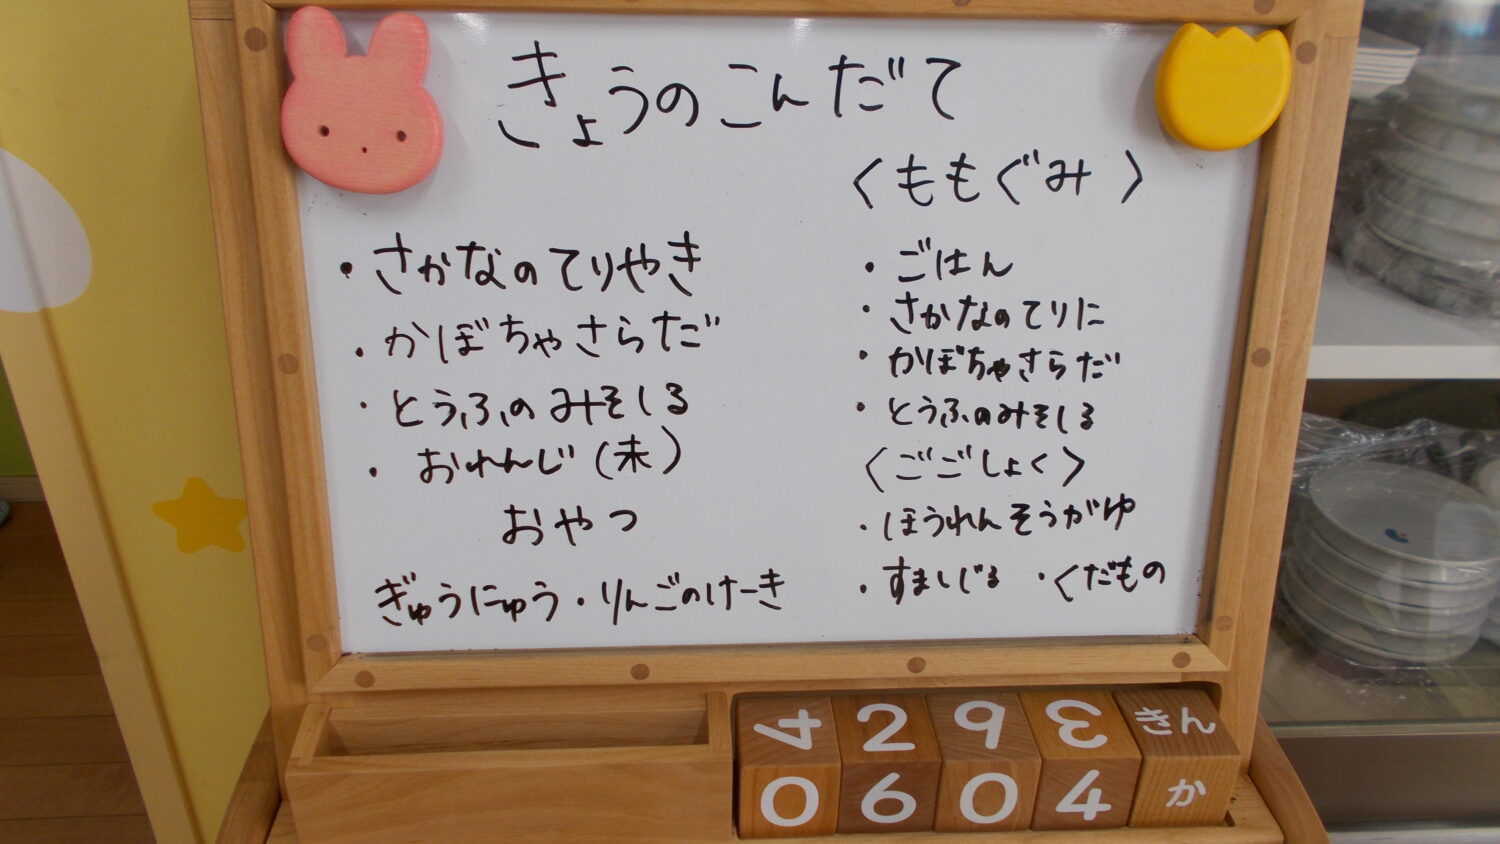 きょうのこんだて
・さかなのてりやき
・かぼちゃさらだ
・とうふのみそしる
・おれんじ(未)
おやつ
ぎゅうにゅう・りんごのけーき
〈ももぐみ〉
・ごはん
・さかなのてりに
・かぼちゃさらだ
・とうふのみそしる
〈ごごしょく〉
・ほうれんそうがゆ
・すましじる ・くだもの
4 2 9 3 きん
0 6 0 4 か